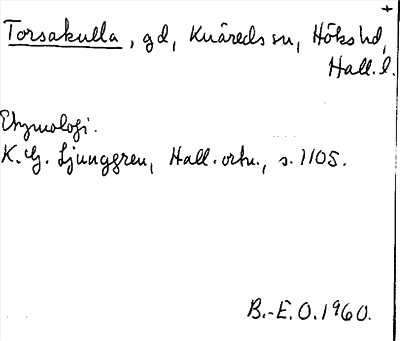 +
Torsakulla, gd, Knäreds sn, Höks hd,
Hall. l.
Etymologi.
K. G. Ljunggren, Hall. ortn., s. 1105.
B.-E. O. 1960.